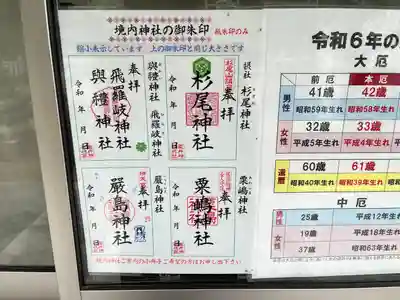 境内神社の御朱印 紙朱印のみ
縮小表示しています 上の御朱印と同じ大きさです
摂社 杉尾神社
奉拝
杉尾神社
令和 年 月 日
與禮神社 飛羅岐神社
奉拝
飛羅岐神社
與禮神社
令和 年 月 日
粟嶋神社
奉拝
粟嶋神社
令和 年 月 日
嚴島神社
奉拝
嚴島神社
令和 年 月 日
令和6年の
大厄
前厄 本厄
男性 41歳 42歳
昭和59年生れ 昭和58年生れ
女性 32歳 33歳
平成5年生れ 平成4年生れ
還暦 60歳 61歳
昭和40年生れ 昭和39年生れ
中厄
男性 25歳 平成12年生れ
女性 19歳 平成18年生れ
37歳 昭和63年生れ